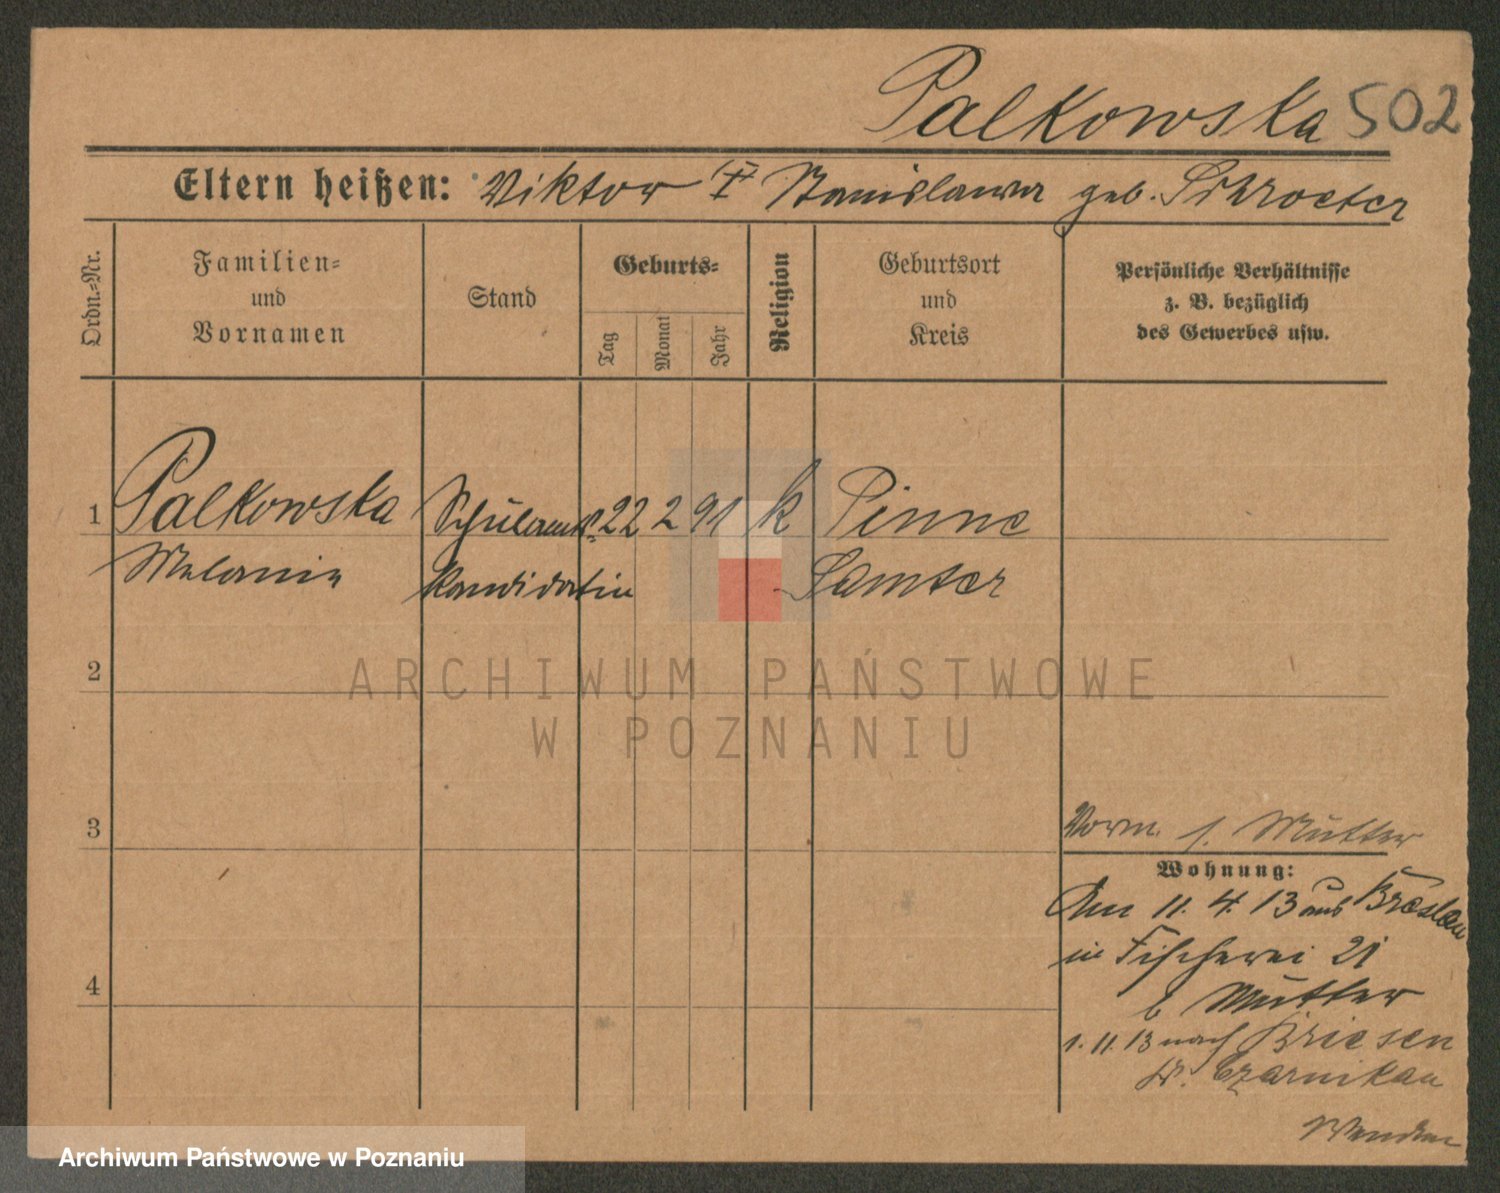 Palkowska 502
Eltern heißen: Viktor † Stanislawa geb. Schroeter
Ordn.-Nr.
Familien-
und
Vornamen
Stand
Geburts-
Tag
Monat
Jahr
Religion
Geburtsort
und
Kreis
Persönliche Verhältnisse
z. B. bezüglich
des Gewerbes usw.
1 Palkowska Schulamts- 22 2 91 k Pinne
Melanie kandidatin Samter
2
3
4
Vorm. s. Mutter
Wohnung:
Am 11. 4. 13 aus Breslau
in Fischerei 21
b Mutter
1. 11. 13 nach Briesen
Kr. Czarnikau
Wenden
ARCHIWUM PAŃSTWOWE
W POZNANIU
Archiwum Państwowe w Poznaniu